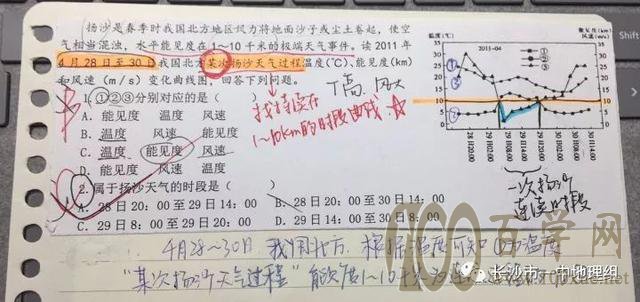 扬沙是春季时我国北方地区风力将地面沙子或尘土卷起，使空
气相当混浊，水平能见度在1~10千米的极端天气事件。读2011年
4月28日至30日我国北方某次扬沙天气过程温度(℃)、能见度(km)
和风速（m/s）变化曲线图，回答下列问题。
1.①②③分别对应的是（　）
A. 能见度　温度　风速
B. 温度　风速　能见度
C. 温度　能见度　风速
D. 风速　能见度　温度
2.属于扬沙天气的时段是（　）
A. 28日20：00至29日14：00
B. 28日20：00至29日8：00
C. 29日8：00至29日20：00
D. 29日14：00至30日8：00
T高，风大
找持续在
1~10km的时段曲线
2011-04
能见度(km)
风速(m/s)
温度(℃)
①
②
③
28日20时
29日8时
29日20时
30日14时
一次扬沙
连续时段
4月28~30日 我国北方，根据温度可知
"某次扬沙天气过程" 能见度1~10千米
100百学网
长沙市一中地理组